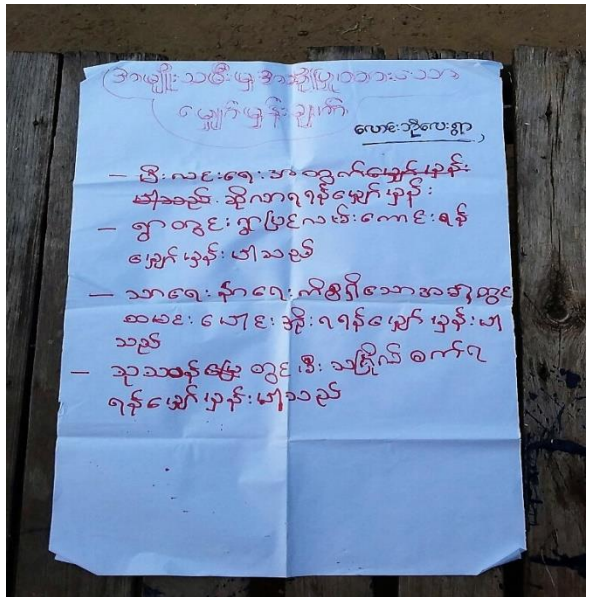 အမျိုးသမီးမှအဆိုပြုထားသော
မျှော်မှန်းချက်
လောင်းဘိုလေးရွာ
– မီးလင်းရေးအတွက်မျှော်မှန်း
ပါသည်. ဆိုလာရရန်မျှော်မှန်း
– ရွာတွင်းရွာပြင်လမ်းကောင်းရန်
မျှော်မှန်းပါသည်
– သာရေးနာရေးကိစ္စရှိသောအခါတွင်
ထမင်းပေါင်းအိုးရရန်မျှော်မှန်းပါ
သည်
– သုသာန်မြေတွင်မီးသင်္ဂြိုလ်စက်ရ
ရန်မျှော်မှန်းပါသည်